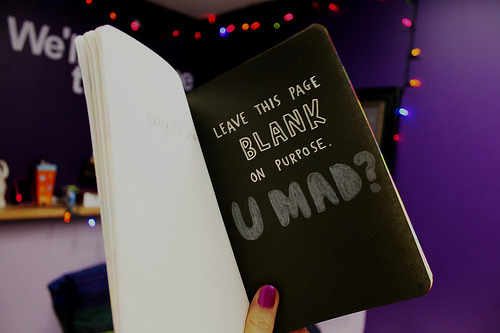 We're
LEAVE THIS PAGE
BLANK
ON PURPOSE.
U MAD?